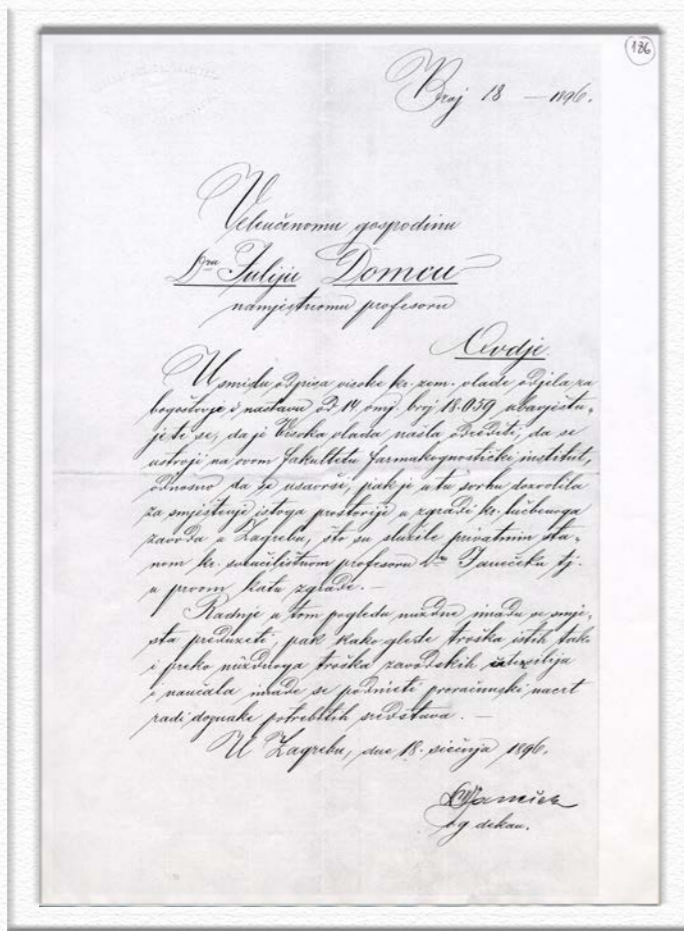 136
Broj 18 — 1896.
Veleučenomu gospodinu
Dru Juliju Domcu
namjestnomu profesoru
Ovdje.
U smislu odpisa visoke kr. zem. vlade odjela za
bogoštovje i nastavu od 14. omj. broj 18.059 obavješću-
jete se, da je Visoka vlada našla odrediti, da se
ustroji na ovom fakultetu farmakognostički institut,
odnosno da se usavrsi, pak je u tu svrhu dozvolila
za smještenje istoga prostorije u zgradi kr. lučbenoga
zavoda u Zagrebu, što su služile privatnim sta-
nom kr. sveučilištnom profesoru Dru Janečeku tj.
u prvom katu zgrade. —
Radnje u tom pogledu nuždne imadu se smje-
sta preduzeti, pak kako glede troška istih tako
i preko nuždnoga troška zavodskih utensilija
i naučala imade se podnieti proračunski nacrt
radi doznake potrebitih sredstava. —
U Zagrebu, dne 18. siečnja 1896.
dekan.